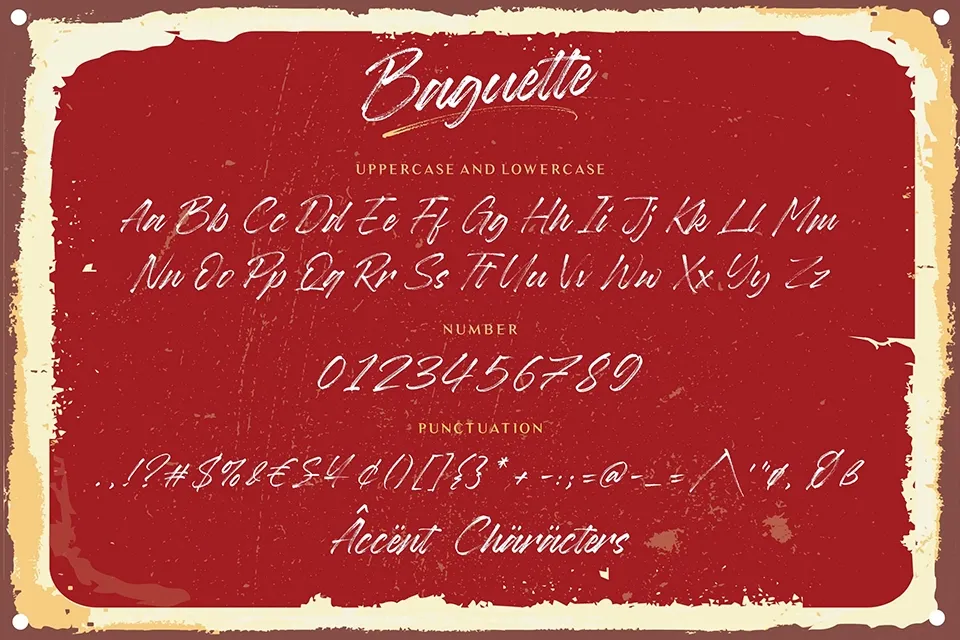 Baguette
UPPERCASE AND LOWERCASE
Aa Bb Cc Dd Ee Ff Gg Hh Ii Jj Kk Ll Mm
Nn Oo Pp Qq Rr Ss Tt Uu Vv Ww Xx Yy Zz
NUMBER
0123456789
PUNCTUATION
.,!?#$%&€£¥¢()[]{}*+-:;=@-_=/\'"ø, Øß
Âccënt Chäräcters